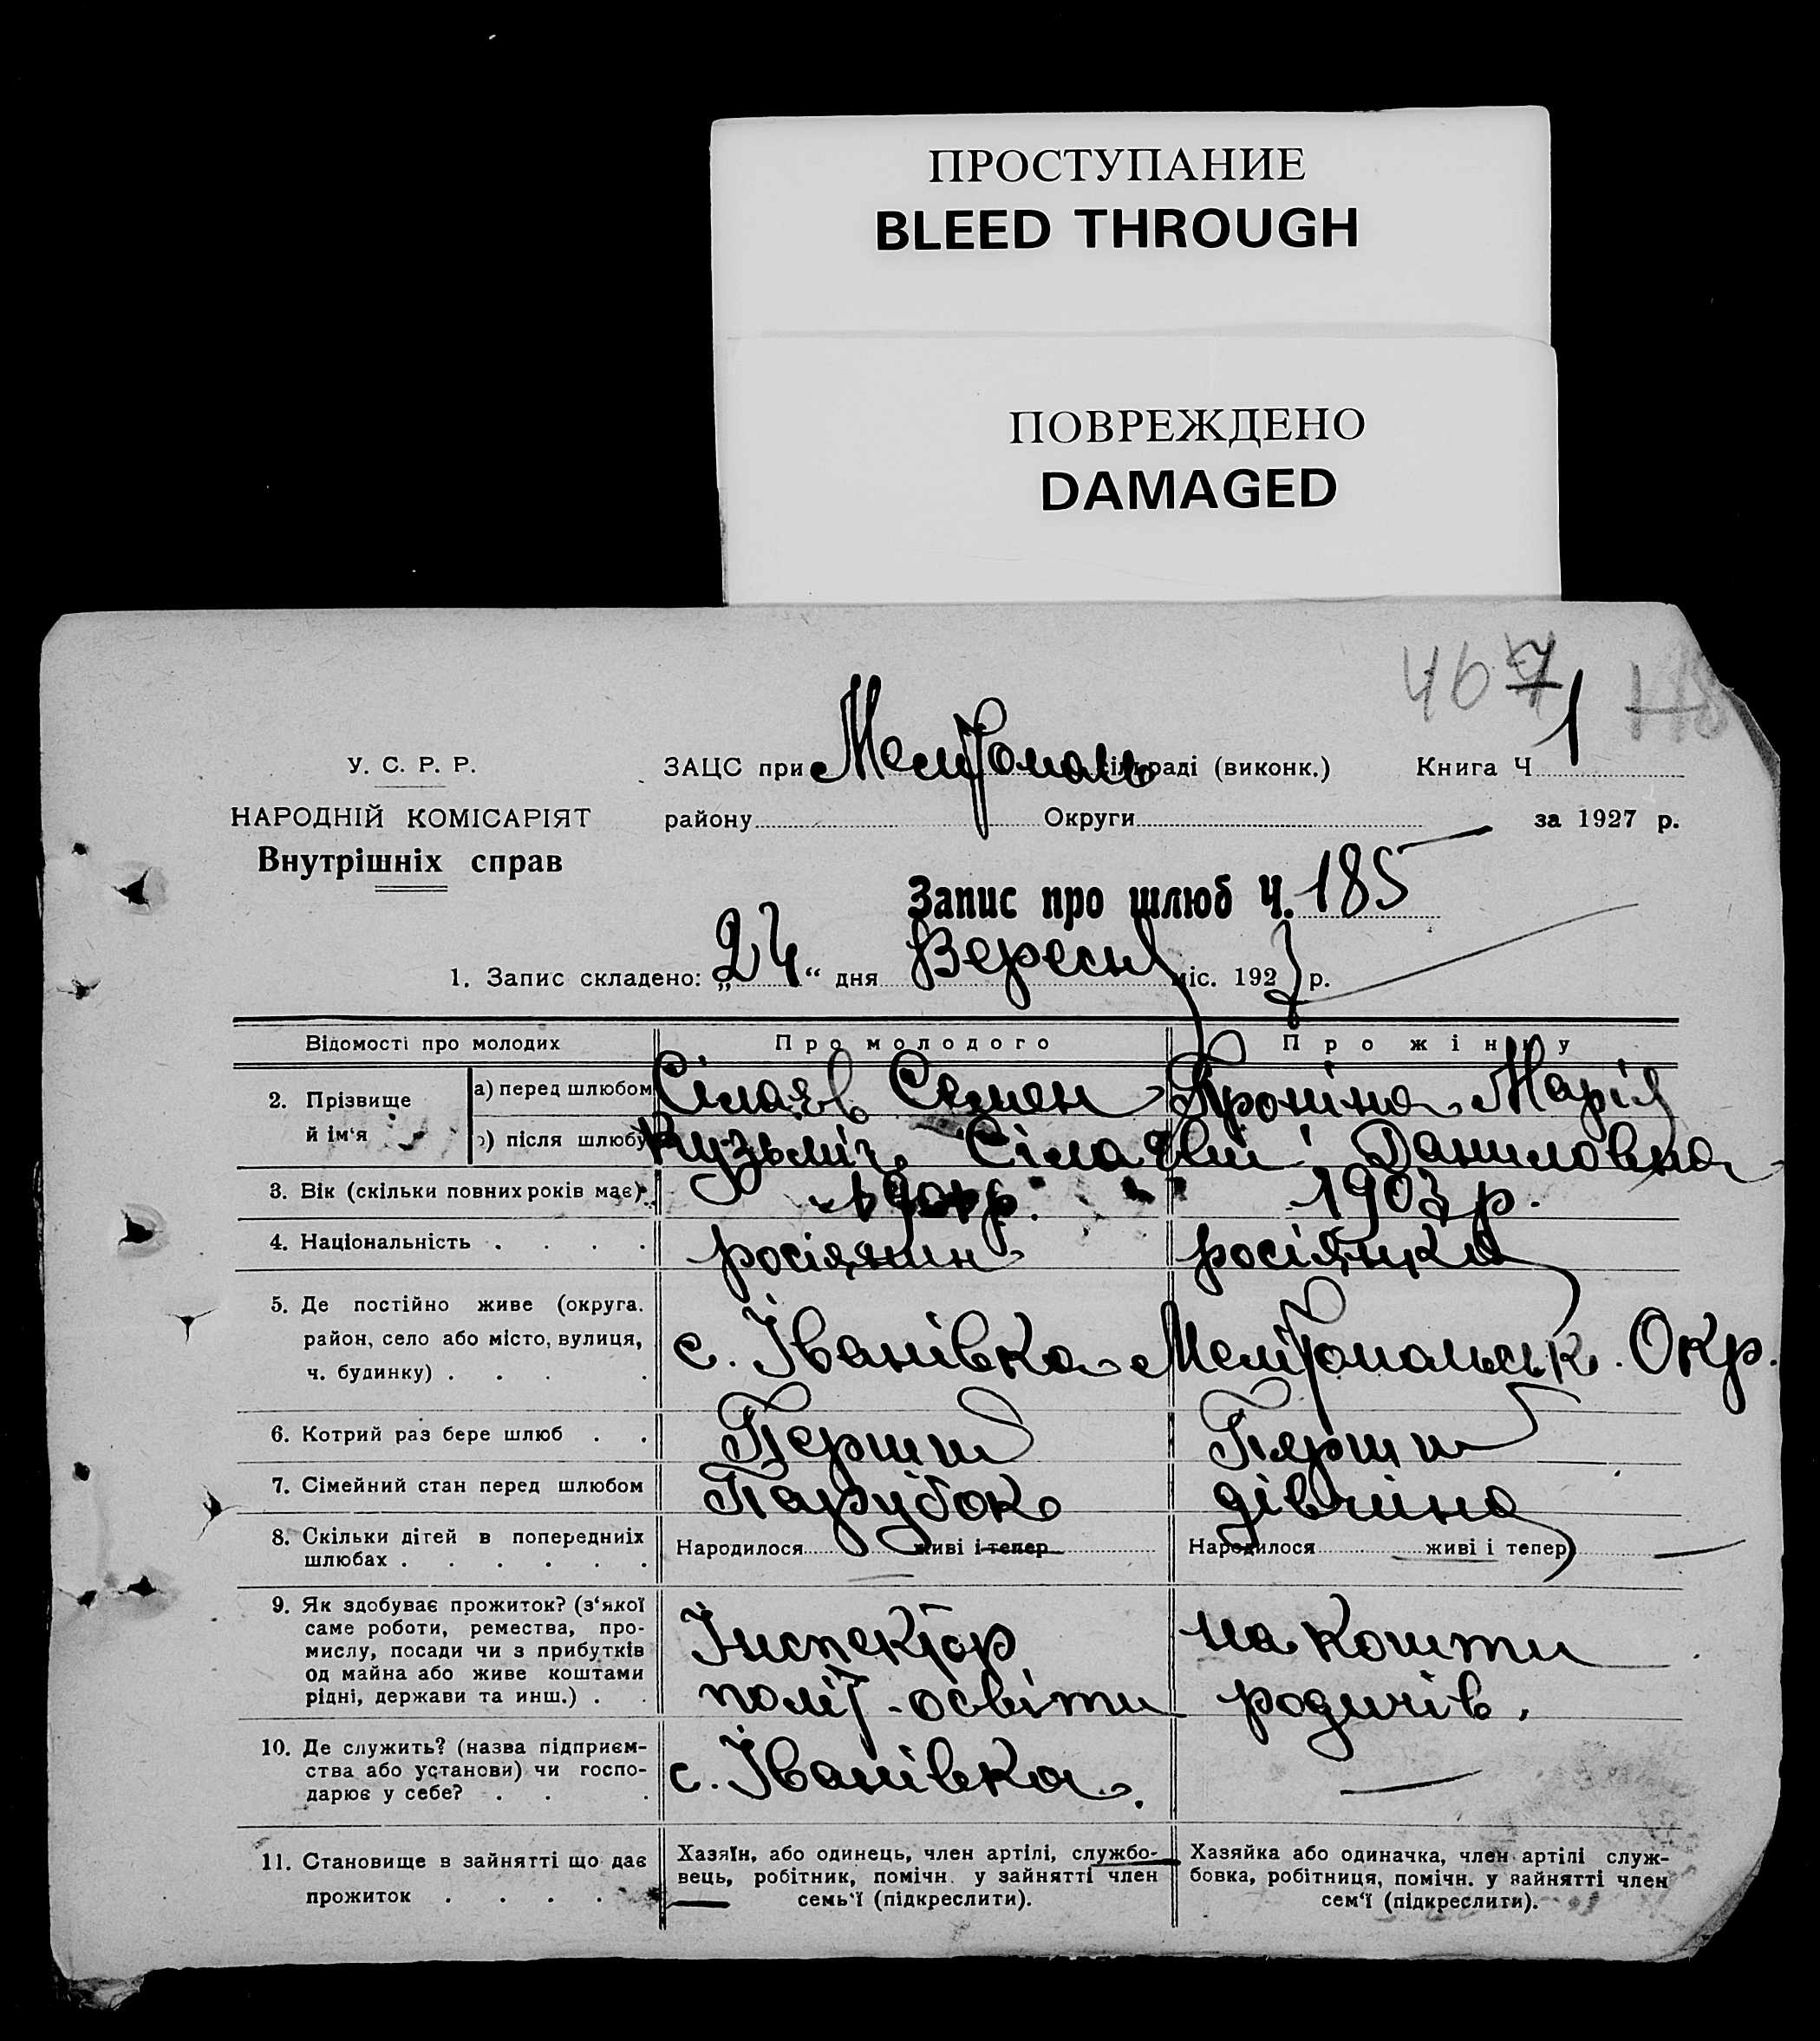 ПРОСТУПАНИЕ
BLEED THROUGH
ПОВРЕЖДЕНО
DAMAGED
467
У. С. Р. Р.
ЗАЦС при Мелітополь раді (виконк.) Книга Ч 1
НАРОДНІЙ КОМІСАРІЯТ
району Округи за 1927 р.
Внутрішніх справ
Запис про шлюб Ч. 185
1. Запис складено: „24“ дня Вересня міс. 1927 р.
Відомості про молодих Про молодого Про жінку
2. Прізвище й ім‘я
а) перед шлюбом Сілаєв Семен Проніна Марія
б) після шлюбу Кузьміч Сілаєви Даниловна
3. Вік (скільки повних років має) 1903 р.
4. Національність . . . . росіянин росіянка
5. Де постійно живе (округа.
район, село або місто, вулиця,
ч. будинку) . . . .
с. Іванівка Мелітопольськ. Окр.
6. Котрий раз бере шлюб . . Перший Перший
7. Сімейний стан перед шлюбом Парубок дівчина
8. Скільки дітей в попередниіх
шлюбах . . . . . .
Народилося живі і тепер Народилося живі і тепер
9. Як здобуває прожиток? (з‘якої
саме роботи, ремества, про-
мислу, посади чи з прибутків
од майна або живе коштами
рідні, держави та инш.) . .
Інспектор
політ-освіти
на кошти
родичів.
10. Де служить? (назва підприєм-
ства або установи) чи госпо-
дарює у себе? . . .
с. Іванівка.
11. Становище в зайнятті що дає
прожиток . . . .
Хазяїн, або одинець, член артілі, службо-
вець, робітник, помічн. у зайнятті член
семь‘ї (підкреслити).
Хазяйка або одиначка, член артілі служ-
бовка, робітниця, помічн. у зайнятті член
сем‘ї (підкреслити).